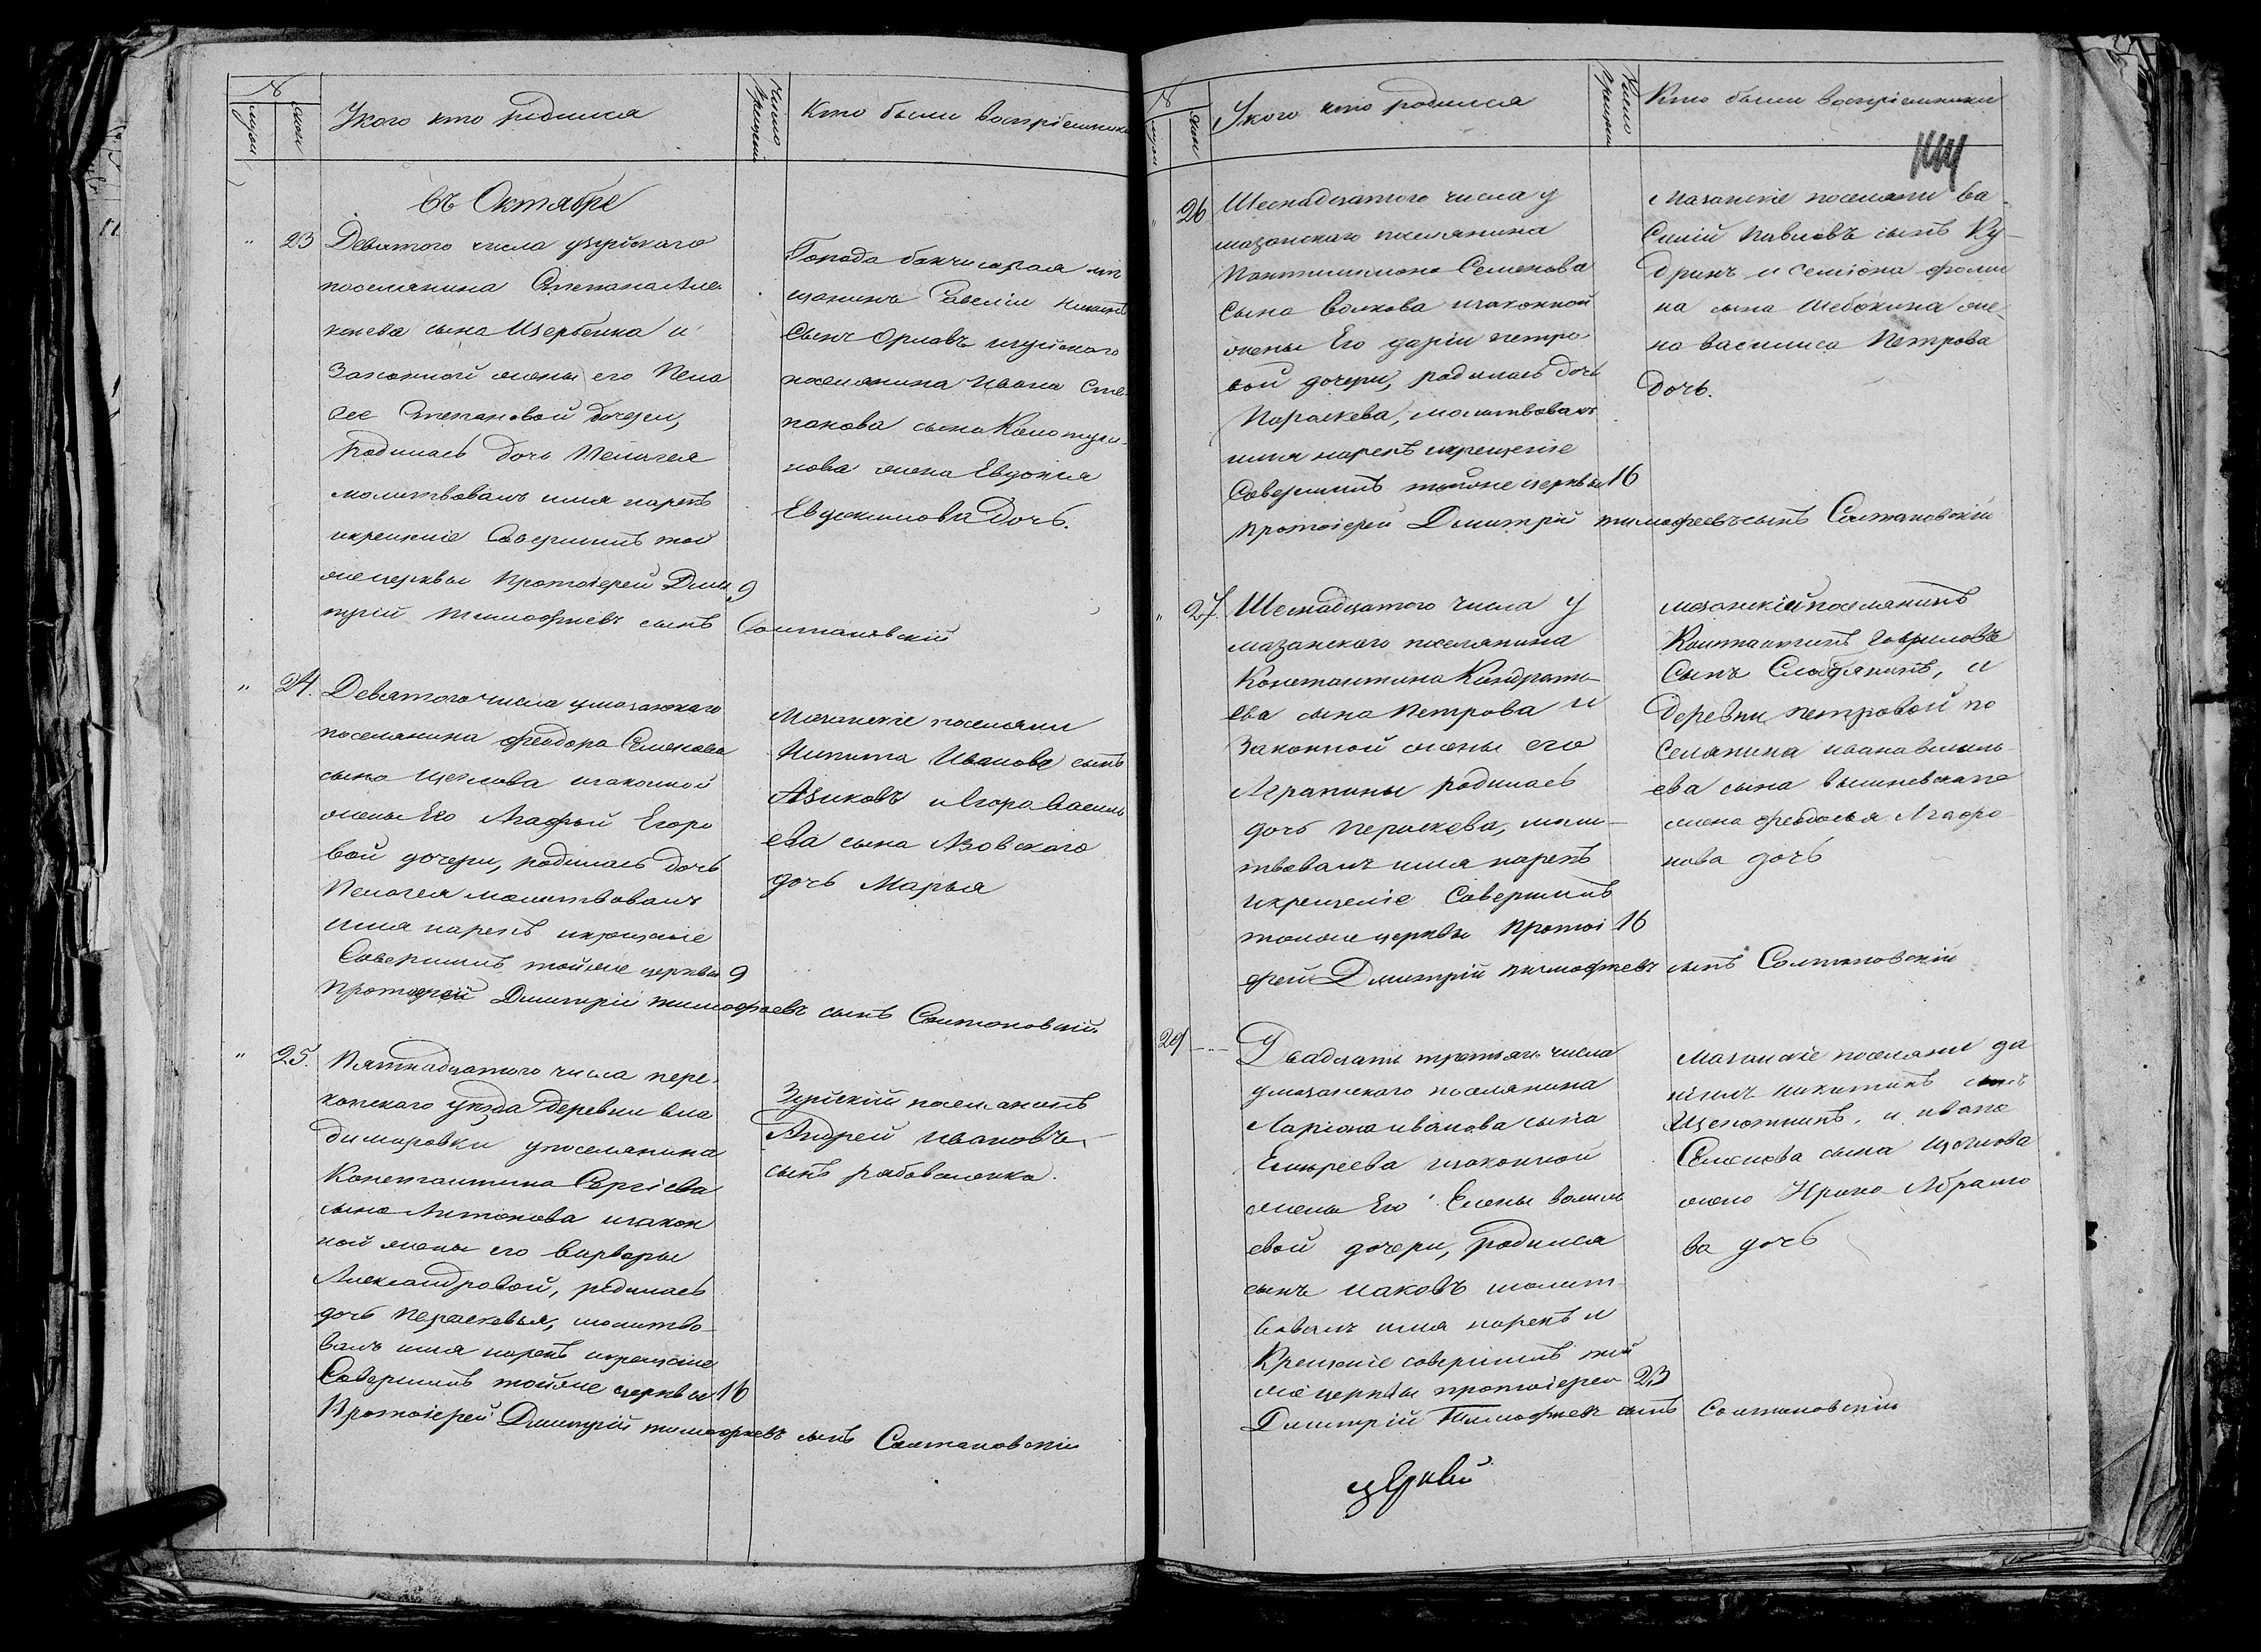 №
мужск
женск
У кого кто родился
Число крещен
Кто были воспріемники
Въ Октябре
" 23 Девятого числа узуйскаго
поселянина Степана Але
сына Щербенка и
Законной жены его Пела
гее Степановой дочери,
родилась дочь Пелагея
молитвовалъ имя нарекъ
икрещеніе Совершилъ той
жецерквы Протоіерей Дми 9
трій Тимофѣевъ сынъ Солтановскій
Города бакчисарая мѣ
щанинъ Савелій
Сынъ Орловъ изуйского
поселянина Ивана Сте
панова сына
нова жена Евдокия
Евдокимова Дочь.
" 24. Девятого числа умазанскаго
поселянина феодора Семенова
сына Щеглова изаконной
жены Его Агафьи Егоро
вой дочери, родилась дочь
Пелагея молитвовалъ
имя нарекъ икрещеніе
Совершилъ тойже церквы 9
Протоіерей Димитрій тимофеевъ сынъ Солтановскій
Мазанскіе поселяни
Никита Ивановъ сынъ
Азиковъ иЕгора Василь
ева сына Азовского
дочь Марья
" 25. Пятнадцатого числа пере
копского уѣзда Деревни вла
димировки упоселянина
Константина Сергіева
сына Антонова изакон
ной жены его варвары
Александровой, родилась
дочь Парасковья, молитво
валъ имя нарекъ икрещеніе
Совершилъ тойже церквы 16
Протоіерей Димитрій тимофеевъ сынъ Солтановскій
Зуйскій поселянинъ
Андрей Ивановъ
сынъ рабоволенко.
№
мужск
жен
У кого кто родился
Число крещен
Кто были воспріемники
" 26 Шеснадцатого числа у
мазанского поселянина
Пантилимона Семенова
Сына Волкова изаконной
жены Его даріи петро
вой дочери, родилась дочь
Параскева, молитвовалъ
имя нарекъ икрещеніе
Совершилъ тойже церквы 16
протоіерей Димитрій тимофеевъ сынъ Солтановскій
Мазанскіе поселяни ва
Силій Павловъ сынъ Ку
дринъ и Семіона фоми
на сына Шебокина же
на василиса Петрова
дочь.
" 27. Шеснадцатого числа У
мазанского поселянина
Константина Кондрати
ева сына Петрова и
Законной жены его
Агрипины родилась
дочь Параскева, моли
твовалъ имя нарекъ
икрещеніе Совершилъ
тойже церквы Протоі 16
ерей Димитрій тимофѣевъ сынъ Солтановскій
мазанскій поселянинъ
Константинъ Гавриловъ
Сынъ Слобдянинъ, и
деревни петровой по
селянина ивана
ева сына вишневскаго
жена феодосья Агафо
нова дочь
29 Двадцать третьяго числа
умазанского поселянина
Ларіона иванова сына
Елисеева изаконной
жены Его Елены
евой дочери, родился
сынъ Иаковъ молит
вовалъ имя нарекъ и
Крещеніе совершилъ той
же церквы протоіерей 23
Димитрій Тимофѣевъ сынъ Солтановскій
мазанскіе поселяни да
нилъ никитинъ сынъ
Щекотинъ, и ивана
Семенова сына Щеглова
жена Ирина Абрамо
ва дочь